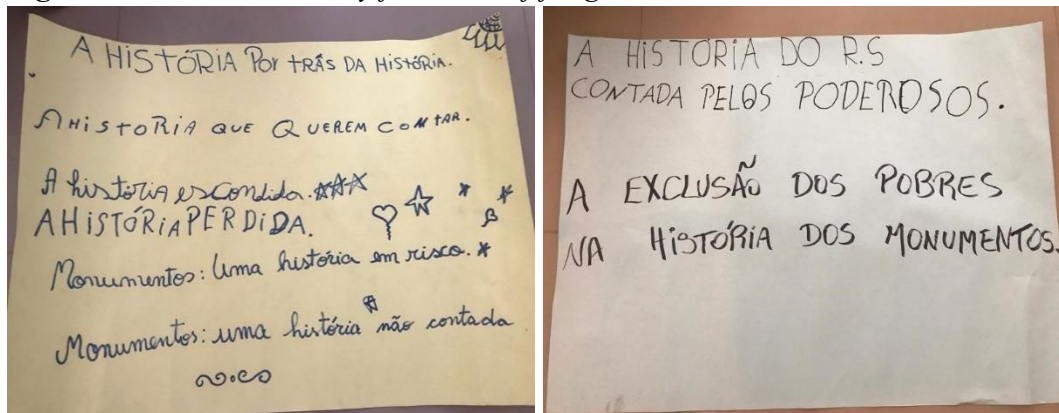 A HISTÓRIA POr tRÁS DA HistÓRIA.
A HiStORiA QUE QUEREM CONtAR.
A história escondida.
A HISTÓRIA PERDIDA.
Monumentos: Uma história em risco.
Monumentos: uma história não contada
A HISTÓRIA DO R.S
CONTADA PELOS PODEROSOS.
A EXCLUSÃO DOS POBRES
NA HISTÓRIA DOS MONUMENTOS.